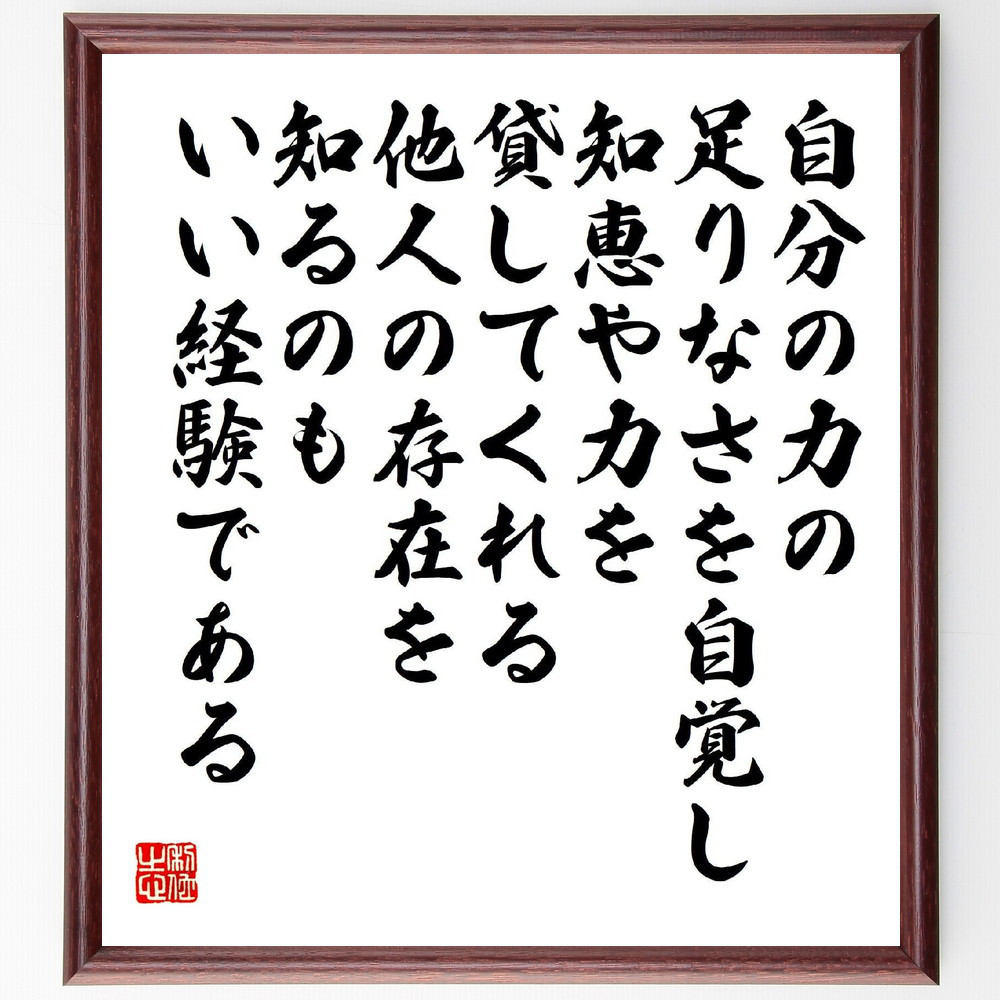 自分の力の
足りなさを自覚し
知恵や力を
貸してくれる
他人の存在を
知るのも
いい経験である